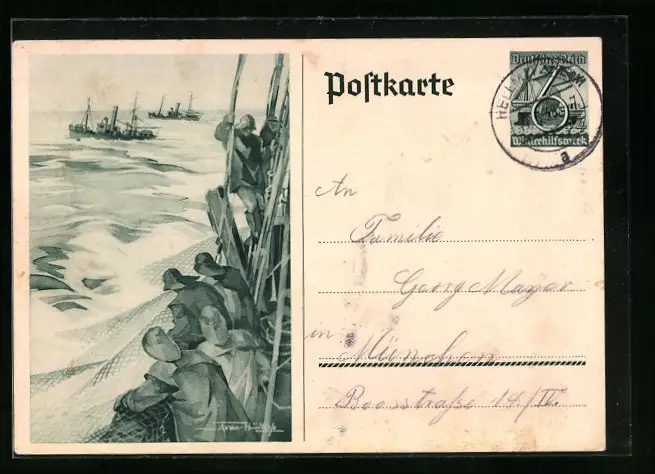 Postkarte
Deutsches Reich
Winterhilfswerk
a
An
Familie
Georg Mayer
in München
Boosstraße 14/IV.